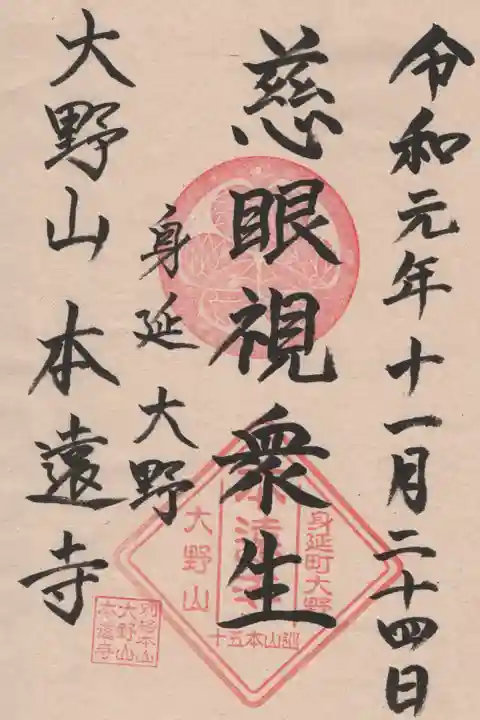 令和元年十一月二十四日
慈眼視衆生
身延大野
大野山 本遠寺
身延町大野
本遠寺
大野山
別格本山
大野山
本遠寺